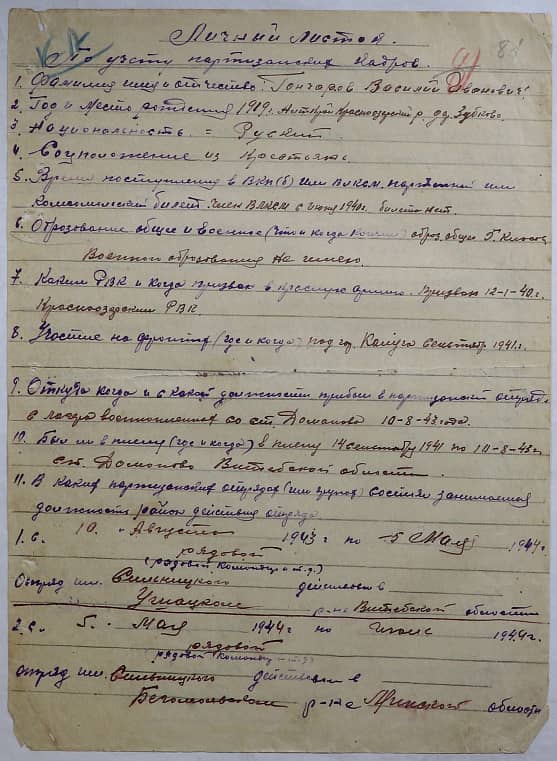 86
Личный листок
По учёту партизанских кадров.
1. Фамилия имя и отчество. Гончаров Василий Иванович
2. Год и место рождения 1919. Алткрай Краснозерский р. д. Зубково.
3. Национальность = Руский
4. Соцположение из Крестьян
5. Время поступления в ВКП(б) или ВЛКСМ, партийный или
комсомольский билет. член ВЛКСМ с июня 1940г. билета нет.
6. Оброзование общее и военное оброз. общ.
Военного оброзования не имею.
7. Каким РВК и когда призван в Красную армию. Призван 12-1-40г.
Краснозерским РВК.
8. Участие на фронтах (где и когда) под гор. Калуга сентябр 1941г.
9. Откуда когда и с какой должности прибыл в партизанский отряд
с лагеря военнопленных со ст. Доманово 10-8-43 года.
10. Был ли в плену (где и когда) в плену 14 сентября 1941 по 10-8-43г
ст. Доманово Витебской области.
11. В каких партизанских отрядах (или групах) состоял занимаемая
должность район действия отряда.
1. с. 10. Августа 1943г по 5 Мая 1944г
рядовой
(рядовой командир и т.д.)
Отряд им. Сильницкого действовал в
Ушацком р-не Витебской области
2. с. 5. Мая 1944г по июнь 1944г.
рядовой
(рядовой командир и т.д.)
отряд им. Сильницкого действовал в
Бегомльском р-не Минской области